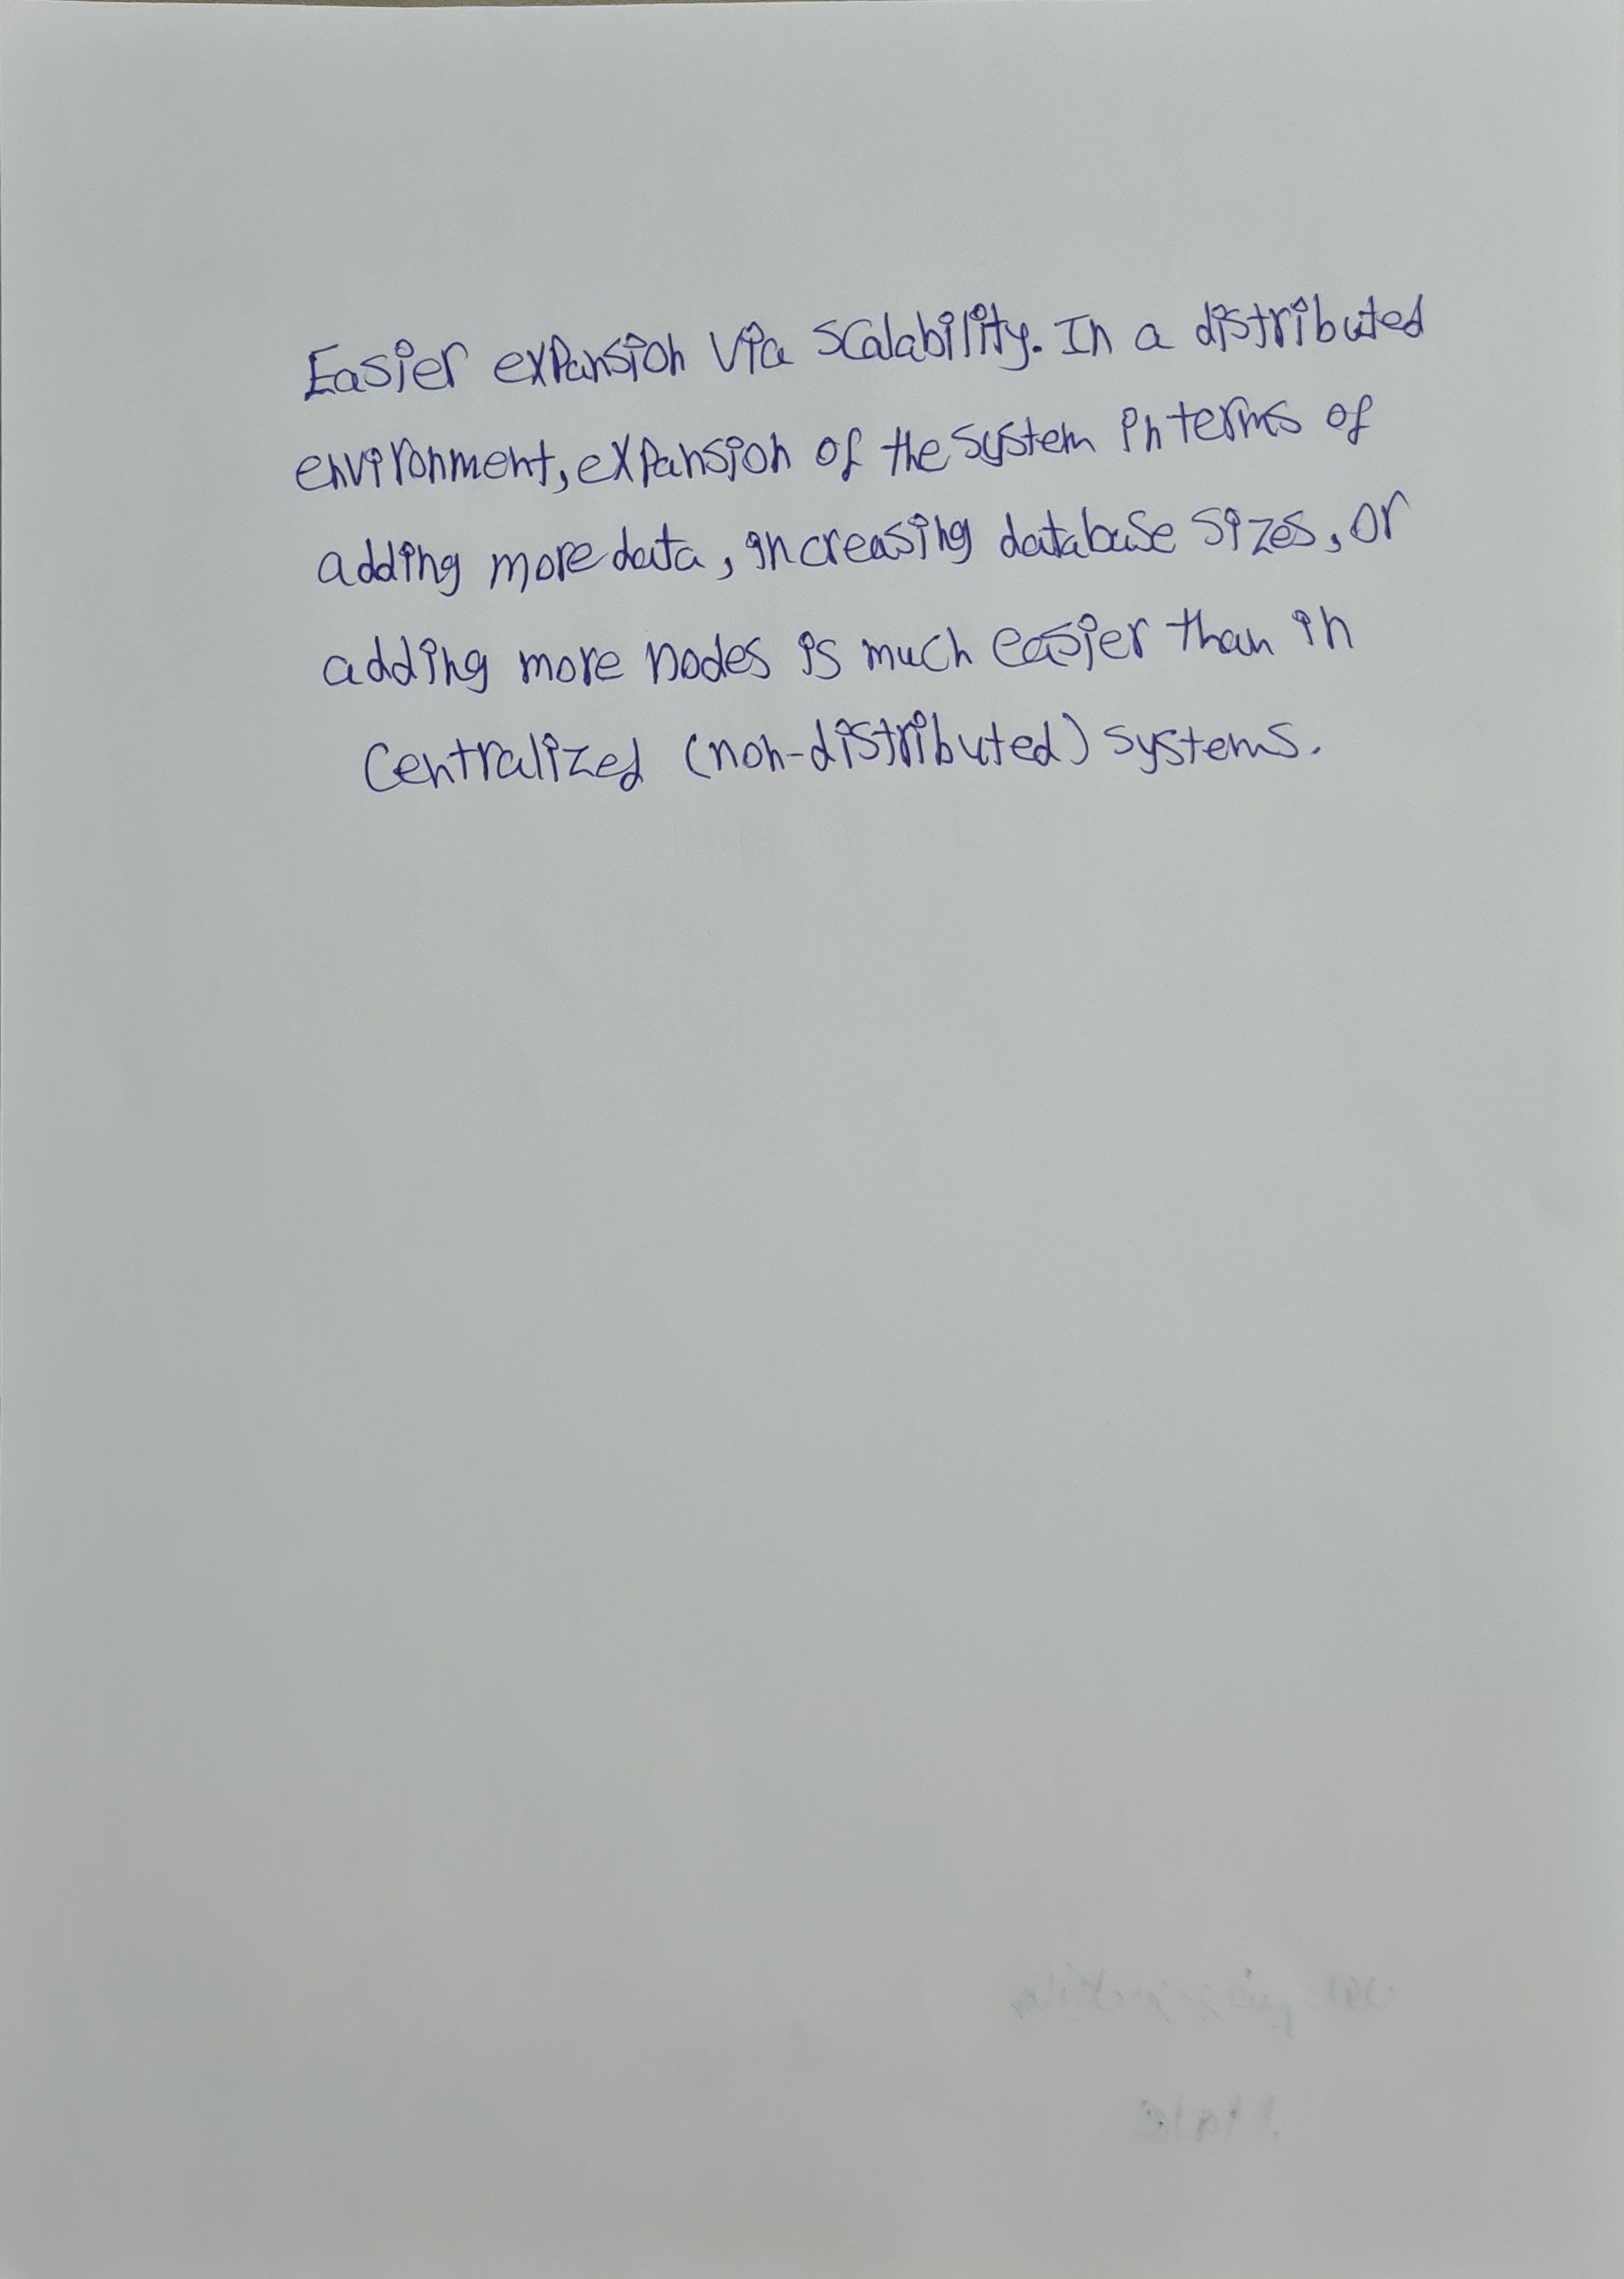 Easier expansion via scalability. In a distributed
environment, expansion of the system in terms of
adding more data, increasing database sizes, or
adding more nodes is much easier than in
centralized (non-distributed) systems.